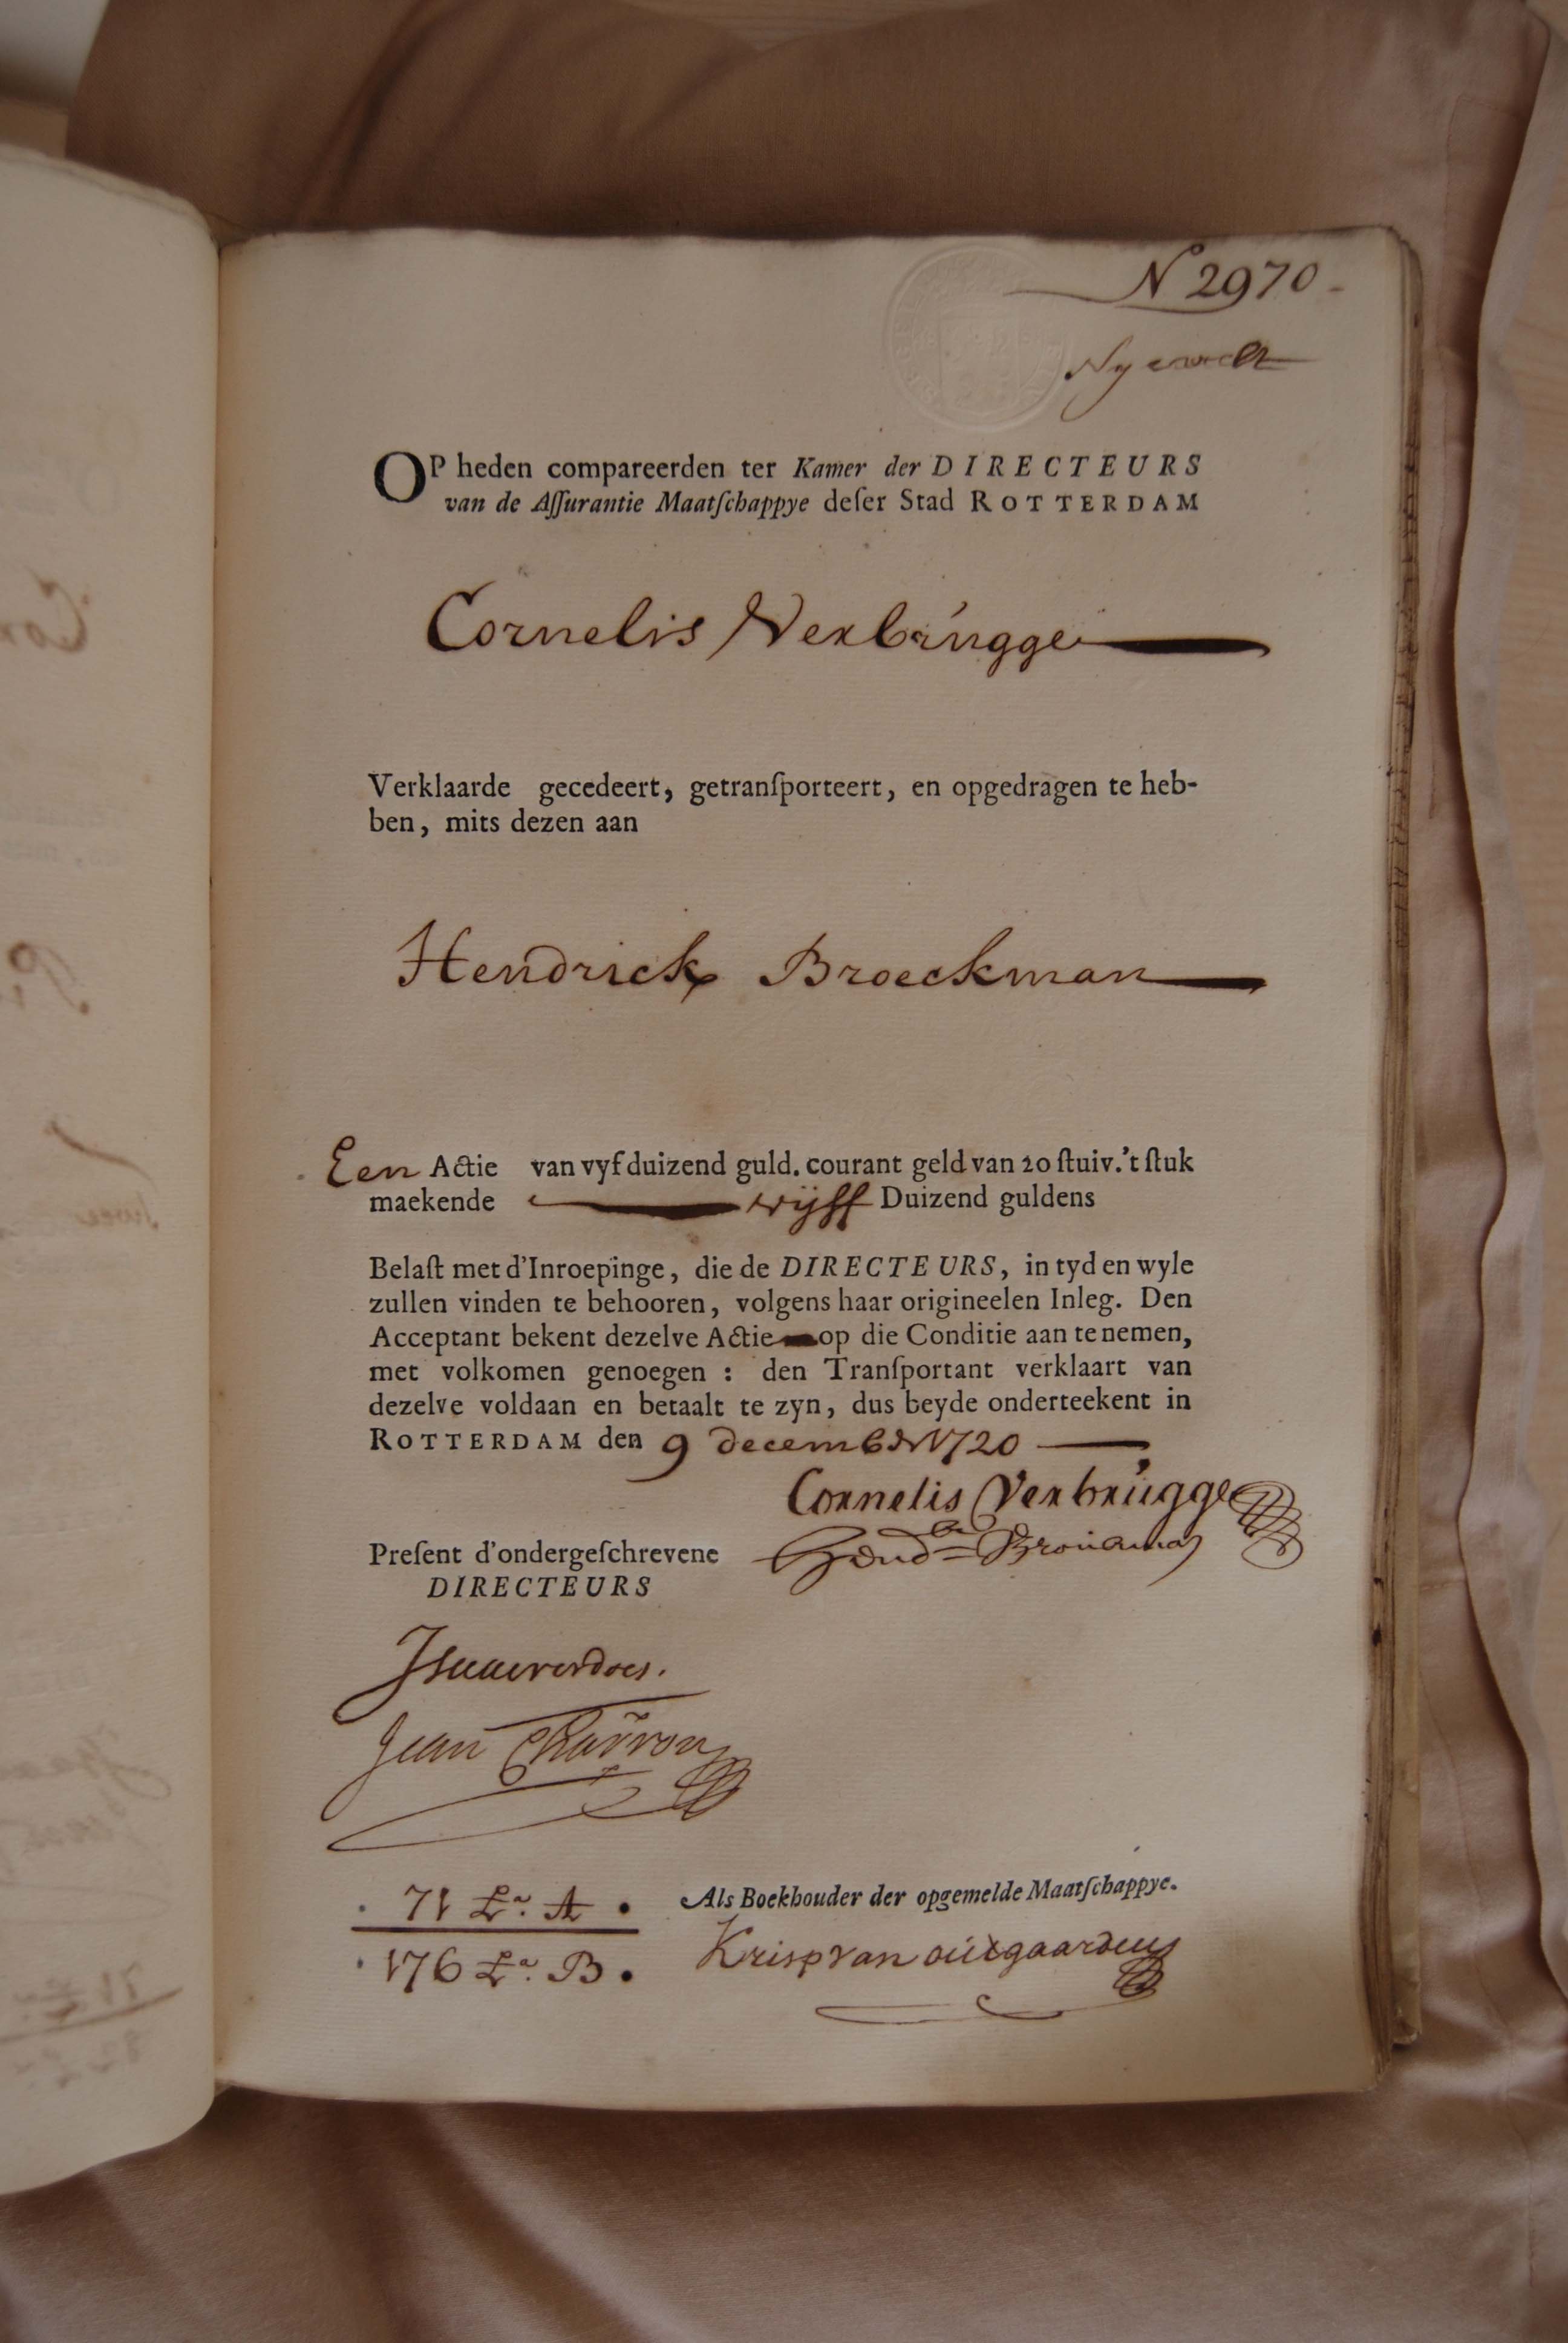 N 2970
OP heden compareerden ter Kamer der DIRECTEURS
van de Aſſurantie Maatſchappye deſer Stad ROTTERDAM
Cornelis Verbrugge
Verklaarde gecedeert, getranſporteert, en opgedragen te heb-
ben, mits dezen aan
Hendrick Broeckman
Een Actie van vyf duizend guld. courant geld van 20 ſtuiv. 't ſtuk
maekende vyff Duizend guldens
Belaſt met d'Inroepinge, die de DIRECTEURS, in tyd en wyle
zullen vinden te behooren, volgens haar origineelen Inleg. Den
Acceptant bekent dezelve Actie op die Conditie aan te nemen,
met volkomen genoegen : den Tranſportant verklaart van
dezelve voldaan en betaalt te zyn, dus beyde onderteekent in
ROTTERDAM den 9 december 1720
Cornelis Verbrugge
Preſent d'ondergeſchrevene
DIRECTEURS
Jean Charron
71 Lr. A.
176 Lr. B.
Als Boekhouder der opgemelde Maatſchappye.
Krisp van